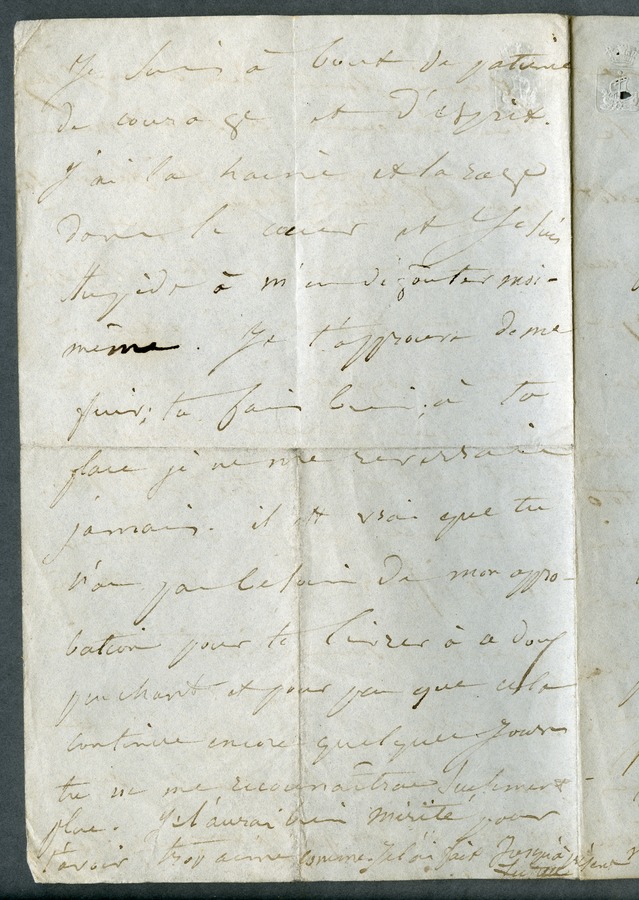 Je suis à bout de patience
de courage et d'esprit.
J'ai la haine et la rage
dans le cœur et Je suis
stupide à m'en dégouter moi-
même. Je t'approuve de me
fuir; tu fais bien; à ta
place je ne me reverrais
jamais. il est vrai que tu
n'as pas besoin de mon appro-
bation pour te livrer à ce doux
penchant et pour peu que cela
continue encore quelques jours
tu ne me reconnaîtras seulement
plus. Je l'aurai bien mérité pour
t'avoir trop aimé comme je l'ai fait Jusqu'à présent